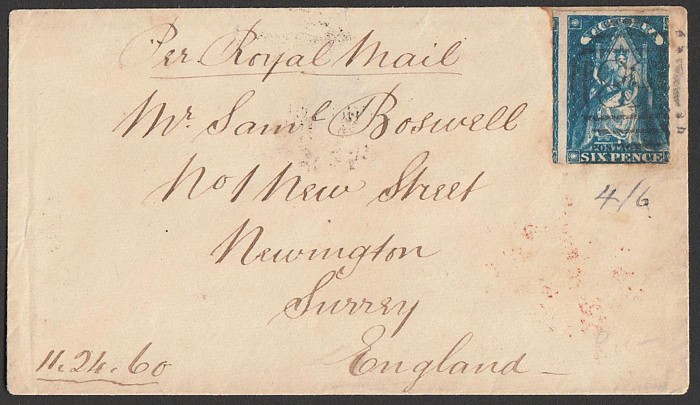 Per Royal Mail
VICTORIA
Mr. Saml Boswell
POSTAGE
SIX PENCE
No 1 New Street
4/6
Newington
Surrey
11.24.60
England